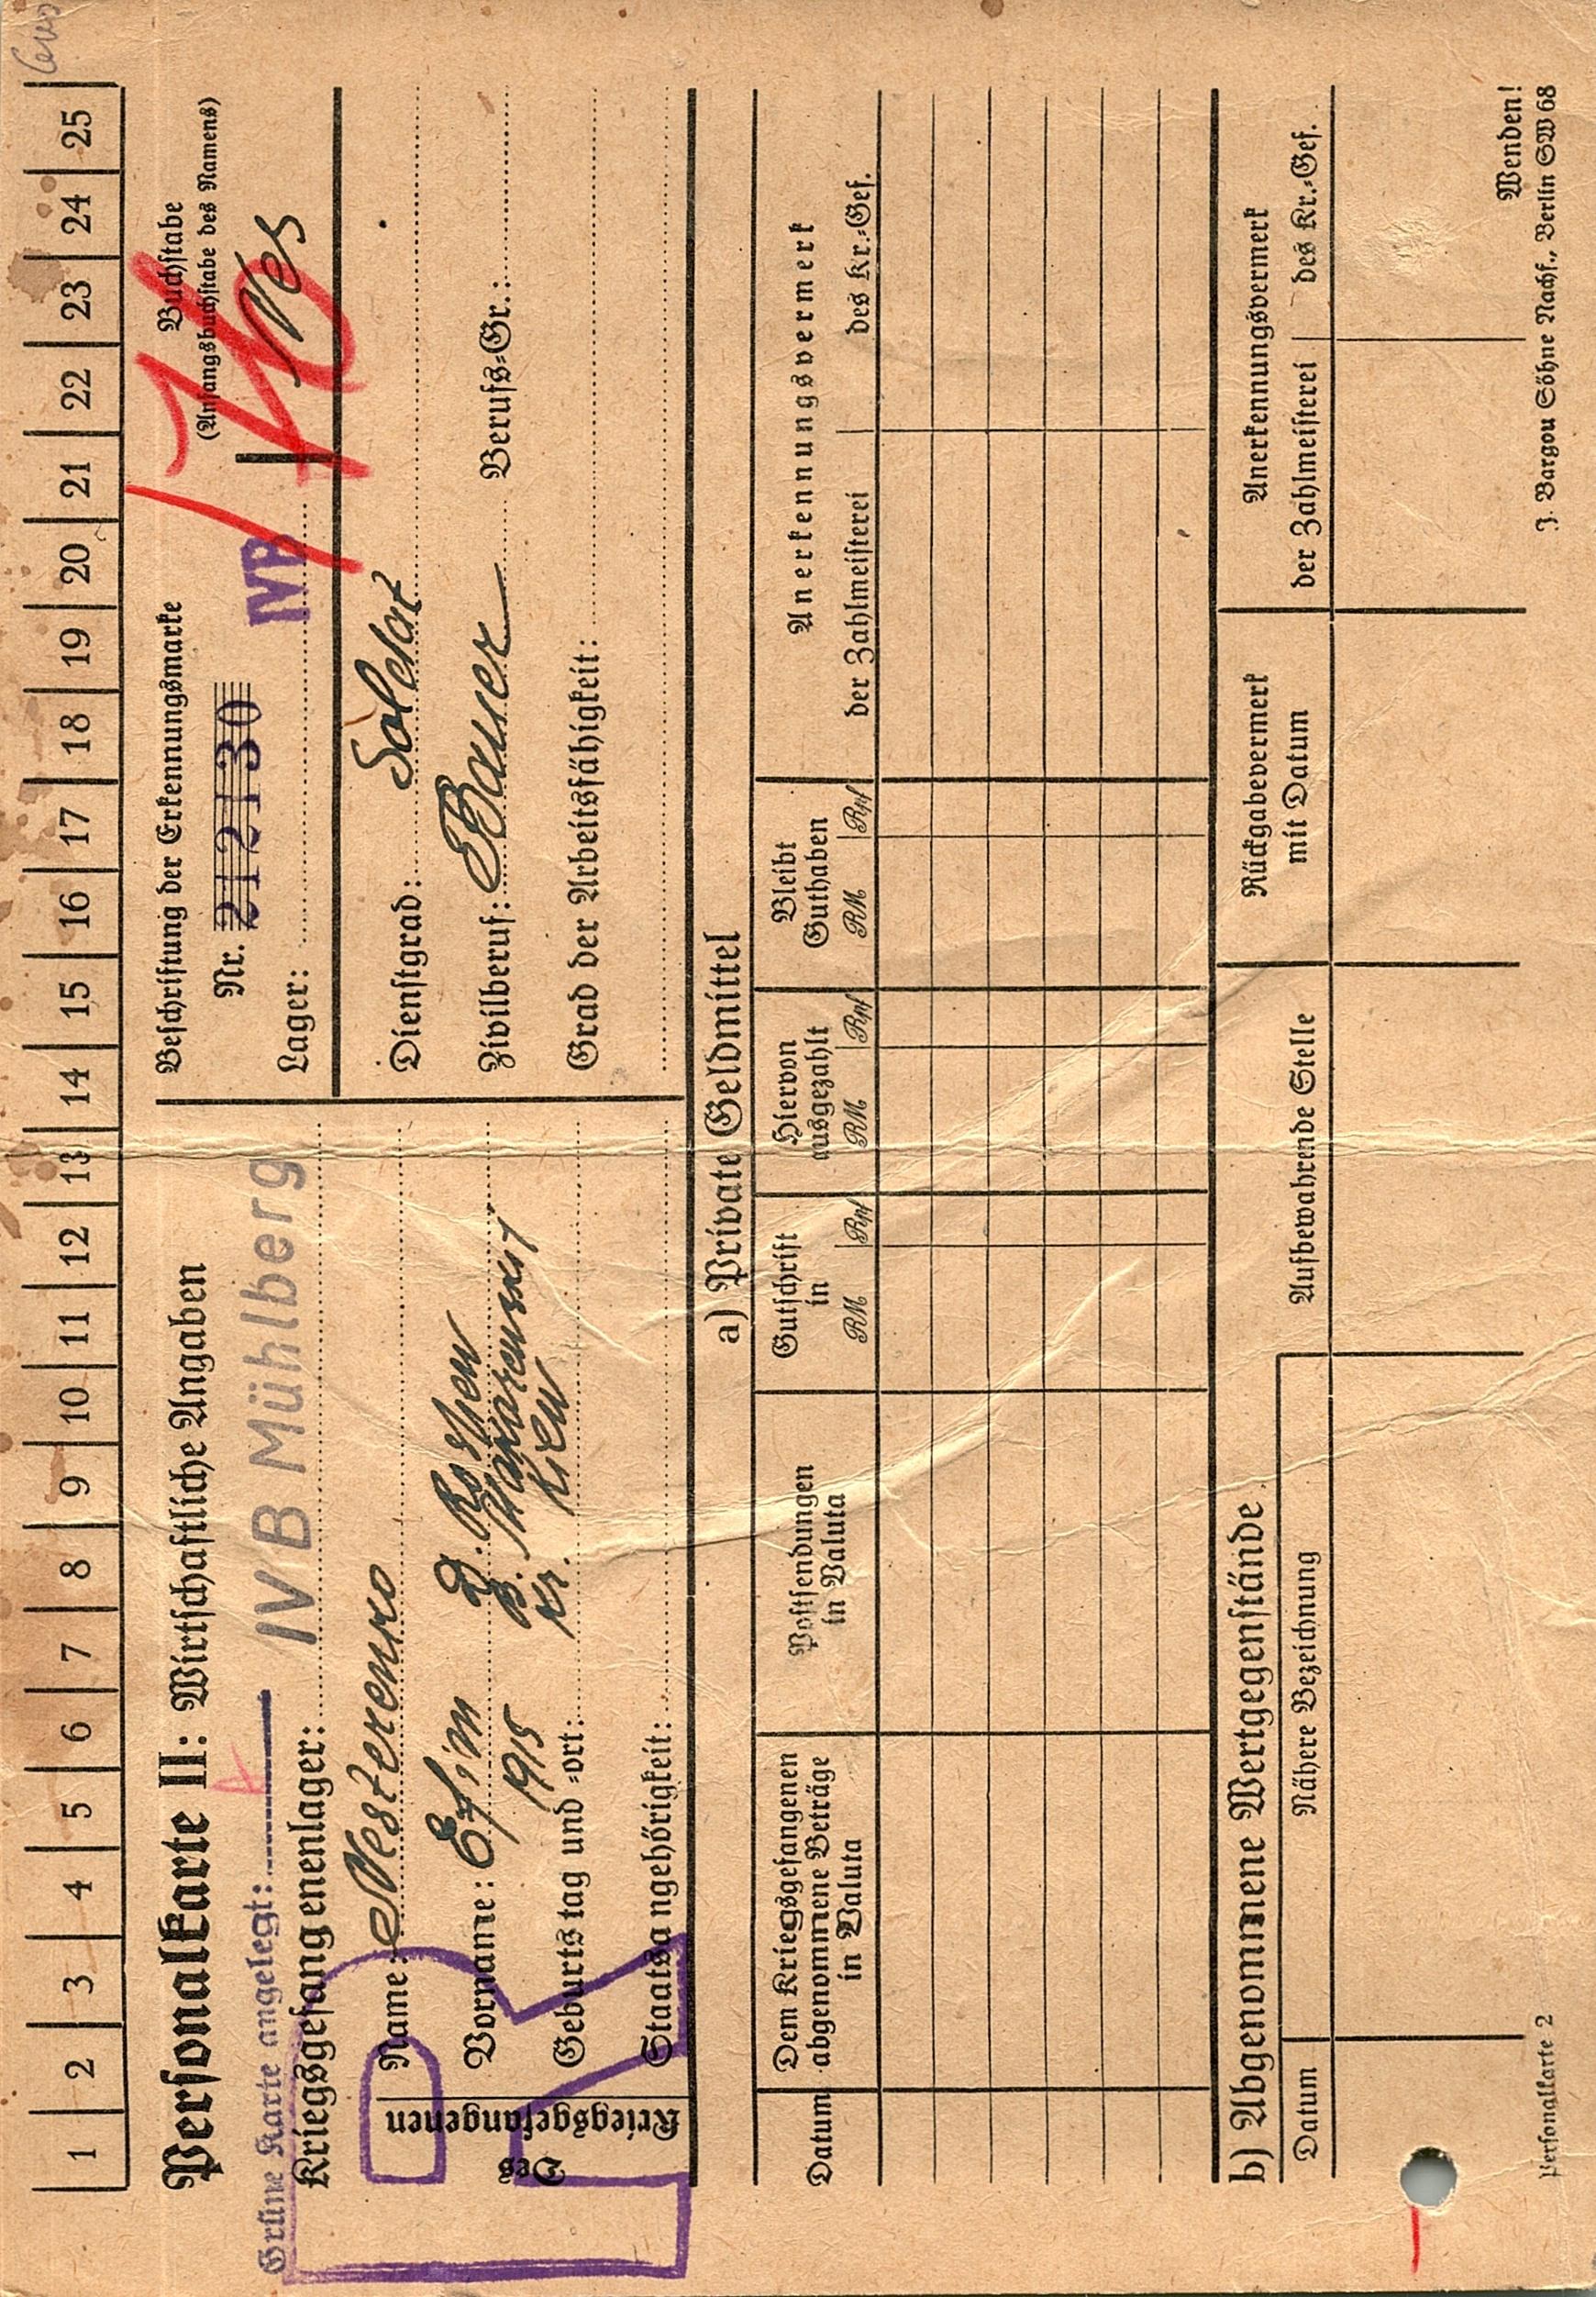 1 2 3 4 5 6 7 8 9 10 11 12 13 14 15 16 17 18 19 20 21 22 23 24 25
Personalkarte II: Wirtschaftliche Angaben
Grüne Karte angelegt:
Kriegsgefangenenlager: IV B Mühlberg
Beschriftung der Erkennungsmarke
Nr. 212130
Lager: IVB
Buchstabe
(Anfangsbuchstabe des Namens)
Nes
Des Kriegsgefangenen
Name: Nesterenko
Vorname: Efim
Geburtstag und -ort: 1915
Kr. Kiew
Staatsangehörigkeit:
R
Dienstgrad: Soldat
Zivilberuf: Bauer Berufs-Gr.:
Grad der Arbeitsfähigkeit:
a) Private Geldmittel
Datum
Dem Kriegsgefangenen
abgenommene Beträge
in Valuta
Postsendungen
in Valuta
Gutschrift
in
RM Rpf
Hiervon
ausgezahlt
RM Rpf
Bleibt
Guthaben
RM Rpf
Anerkennungsvermerk
der Zahlmeisterei des Kr.-Gef.
b) Abgenommene Wertgegenstände
Datum
Nähere Bezeichnung
Aufbewahrende Stelle
Rückgabevermerk
mit Datum
Anerkennungsvermerk
der Zahlmeisterei des Kr.-Gef.
Wenden!
Personalkarte 2
J. Bargou Söhne Nachf., Berlin SW 68